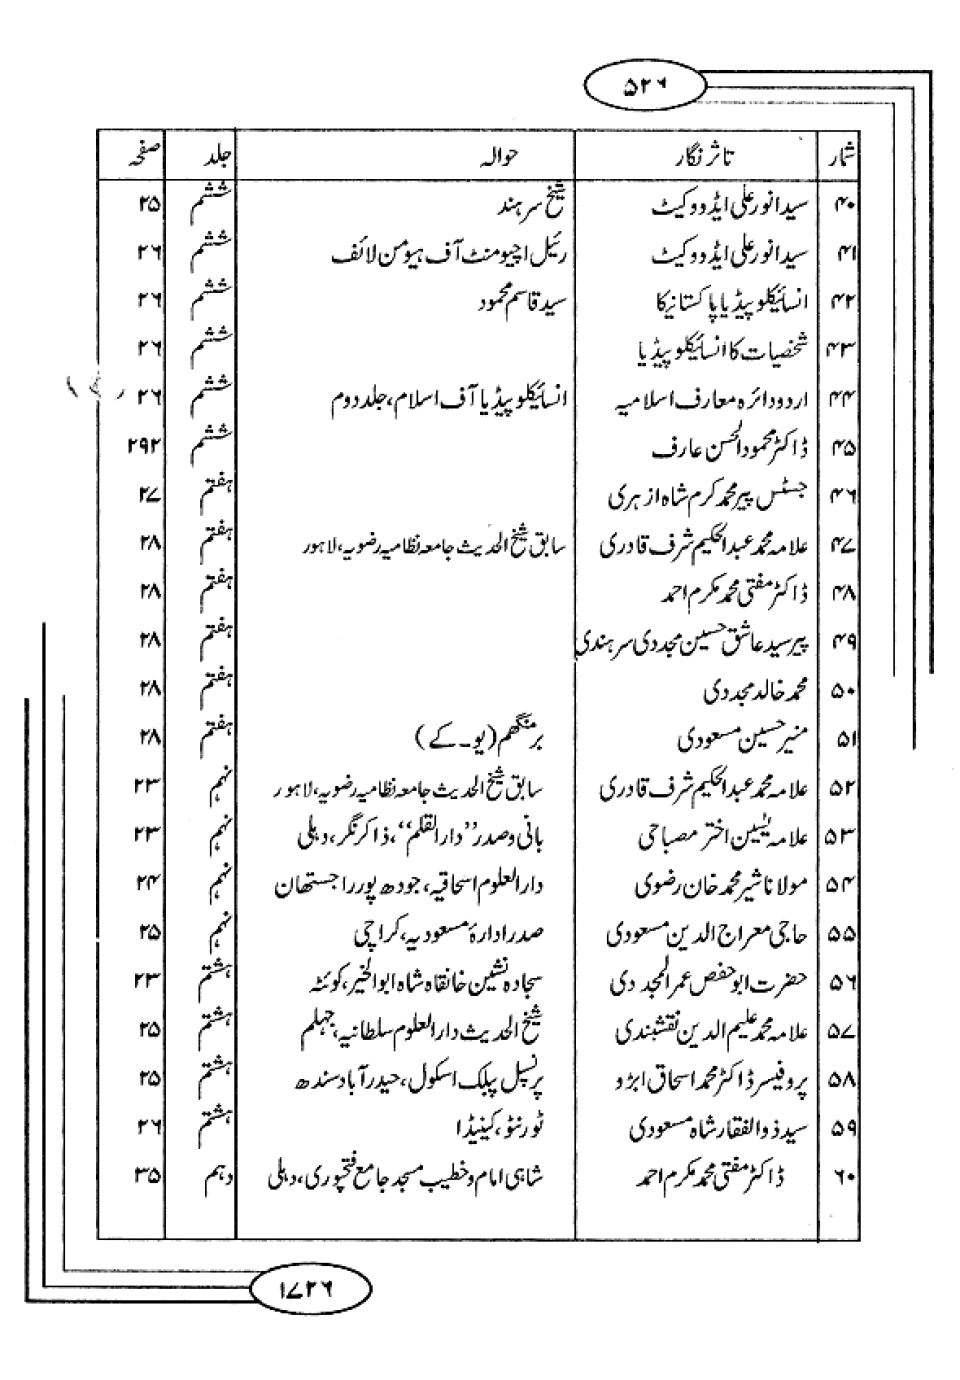 ۵۲۶
شمار تاثر نگار حوالہ جلد صفحہ
۴۰ سید انور علی ایڈووکیٹ شیخ سرہند ششم ۲۵
۴۱ سید انور علی ایڈووکیٹ رئیل اچیومنٹ آف ہیومن لائف ششم ۲۶
۴۲ انسائیکلوپیڈیا پاکستانیکا سید قاسم محمود ششم ۲۶
۴۳ شخصیات کا انسائیکلوپیڈیا ششم ۲۶
۴۴ اردو دائرہ معارف اسلامیہ انسائیکلوپیڈیا آف اسلام، جلد دوم ششم ۲۶
۴۵ ڈاکٹر محمود الحسن عارف ششم ۲۹۲
۴۶ جسٹس پیر محمد کرم شاہ ازہری ہفتم ۲۷
۴۷ علامہ محمد عبدالحکیم شرف قادری سابق شیخ الحدیث جامعہ نظامیہ رضویہ، لاہور ہفتم ۲۸
۴۸ ڈاکٹر مفتی محمد مکرم احمد ہفتم ۲۸
۴۹ پیر سید عاشق حسین مجددی سرہندی ہفتم ۲۸
۵۰ محمد خالد مجددی ہفتم ۲۸
۵۱ منیر حسین مسعودی برمنگھم (یو۔کے) ہفتم ۲۸
۵۲ علامہ محمد عبدالحکیم شرف قادری سابق شیخ الحدیث جامعہ نظامیہ رضویہ، لاہور نہم ۲۳
۵۳ علامہ یٰسین اختر مصباحی بانی و صدر ”دارالقلم“، ذاکر نگر، دہلی نہم ۲۳
۵۴ مولانا شیر محمد خان رضوی دارالعلوم اسحاقیہ، جودھ پور راجستھان نہم ۲۴
۵۵ حاجی معراج الدین مسعودی صدر ادارۂ مسعودیہ، کراچی نہم ۲۵
۵۶ حضرت ابو حفص عمر المجددی سجادہ نشین خانقاہ شاہ ابوالخیر، کوئٹہ ہشتم ۲۳
۵۷ علامہ محمد علیم الدین نقشبندی شیخ الحدیث دارالعلوم سلطانیہ، جہلم ہشتم ۲۵
۵۸ پروفیسر ڈاکٹر محمد اسحاق ابڑو پرنسپل پبلک اسکول، حیدرآباد سندھ ہشتم ۲۵
۵۹ سید ذوالفقار شاہ مسعودی ٹورنٹو، کینیڈا ہشتم ۲۶
۶۰ ڈاکٹر مفتی محمد مکرم احمد شاہی امام و خطیب مسجد جامع فتحپوری، دہلی دہم ۳۵
۱۷۲۶